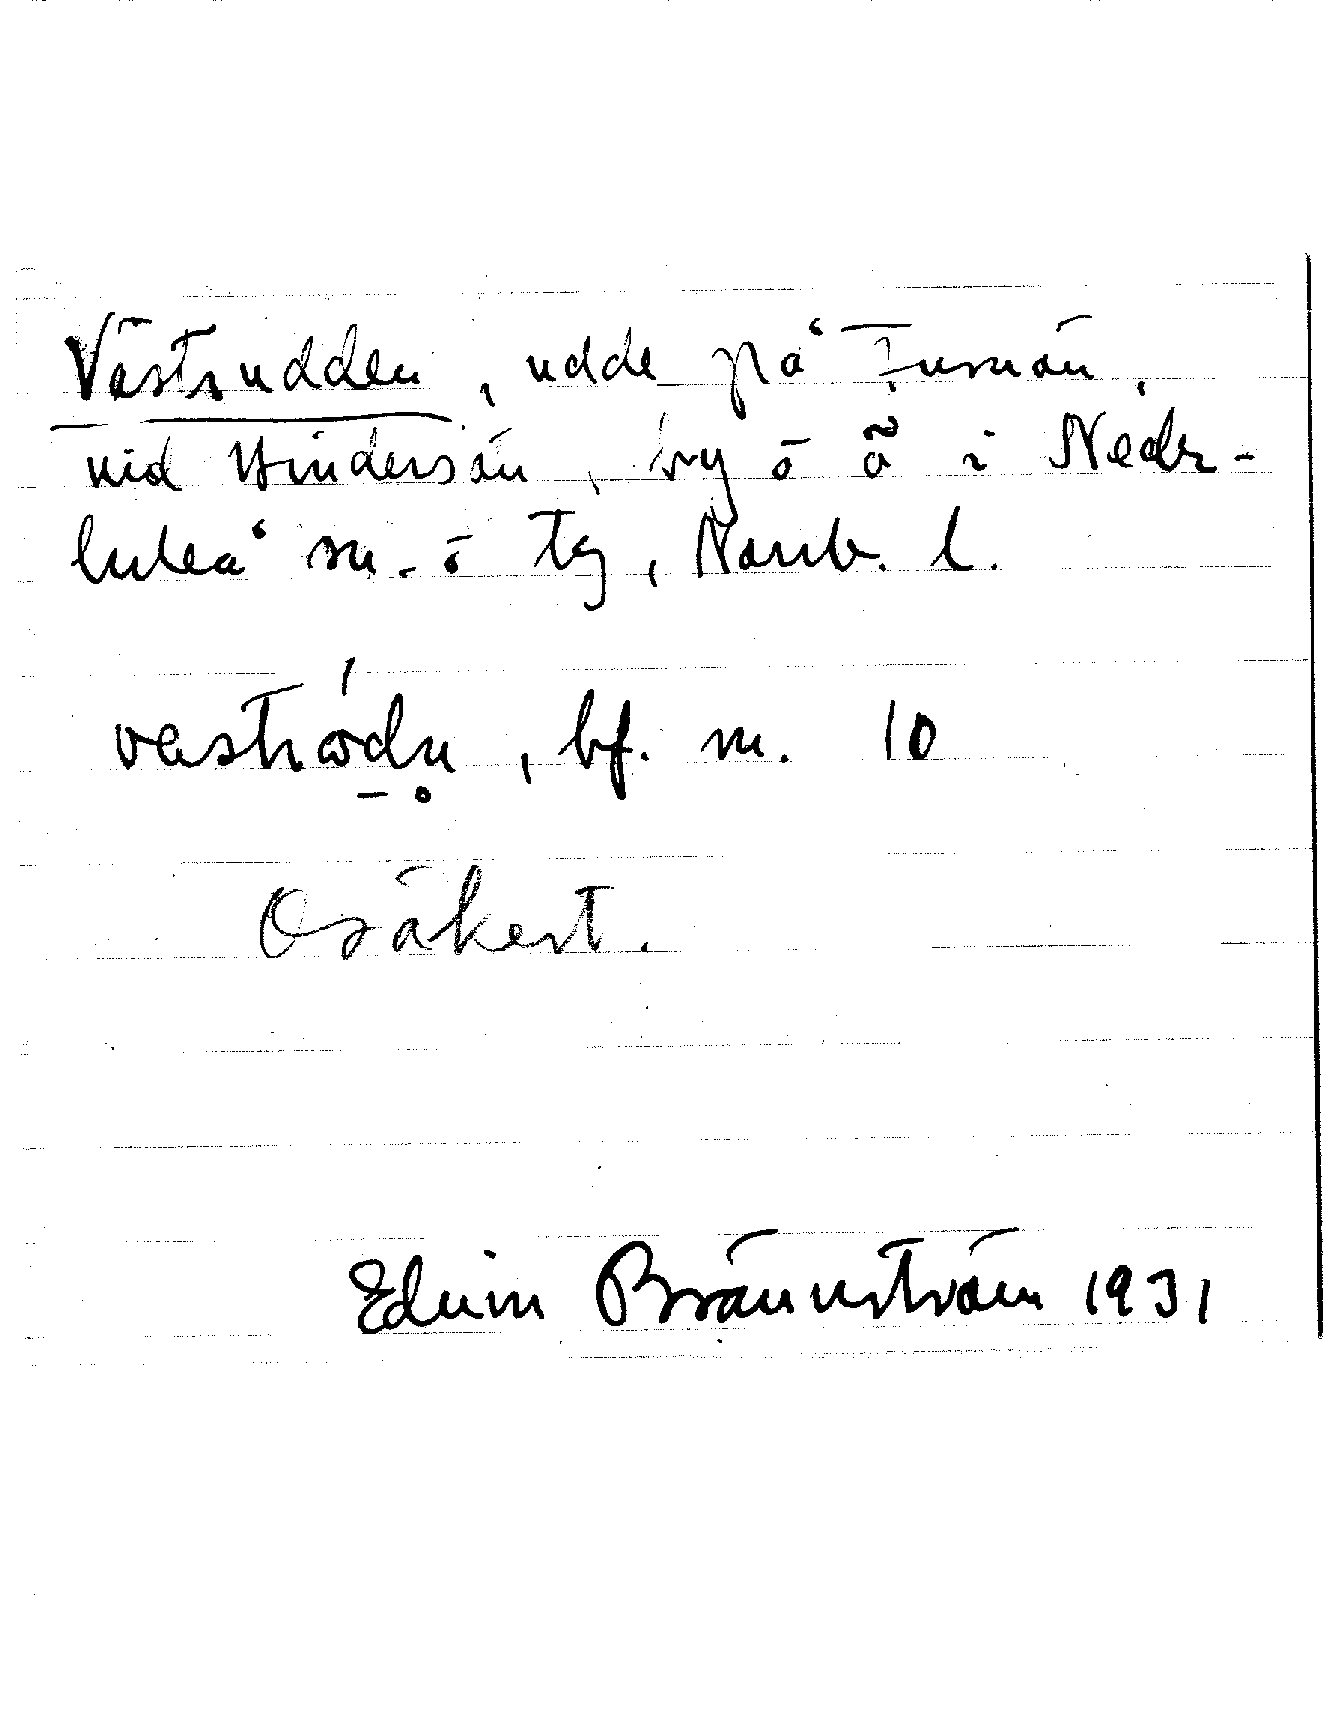 Västrudden, udde på Furuön,
vid Hindersön, by o ö i Neder-
luleå sn. o tg, Norrb. l.
bf. m. 10
Osäkert.
Edvin Brännström 1931